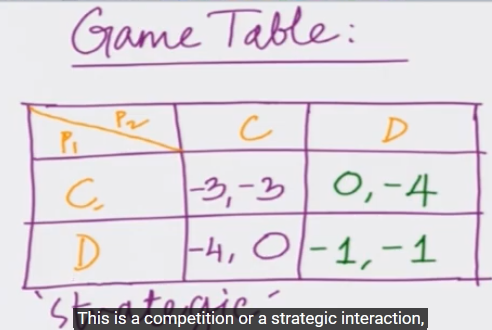 Game Table:
P1 P2 C D
C -3,-3 0,-4
D -4, 0 -1,-1
This is a competition or a strategic interaction,